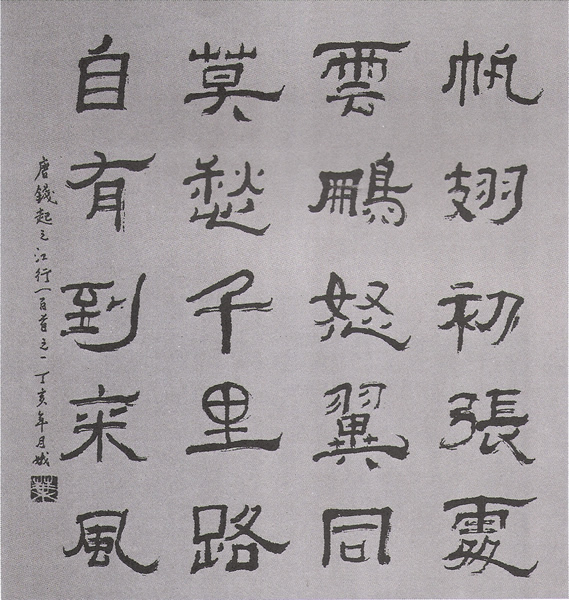 帆翅初張處
雲鵬怒翼同
莫愁千里路
自有到來風
唐錢起之江行一百首之一丁亥年月娥
葉